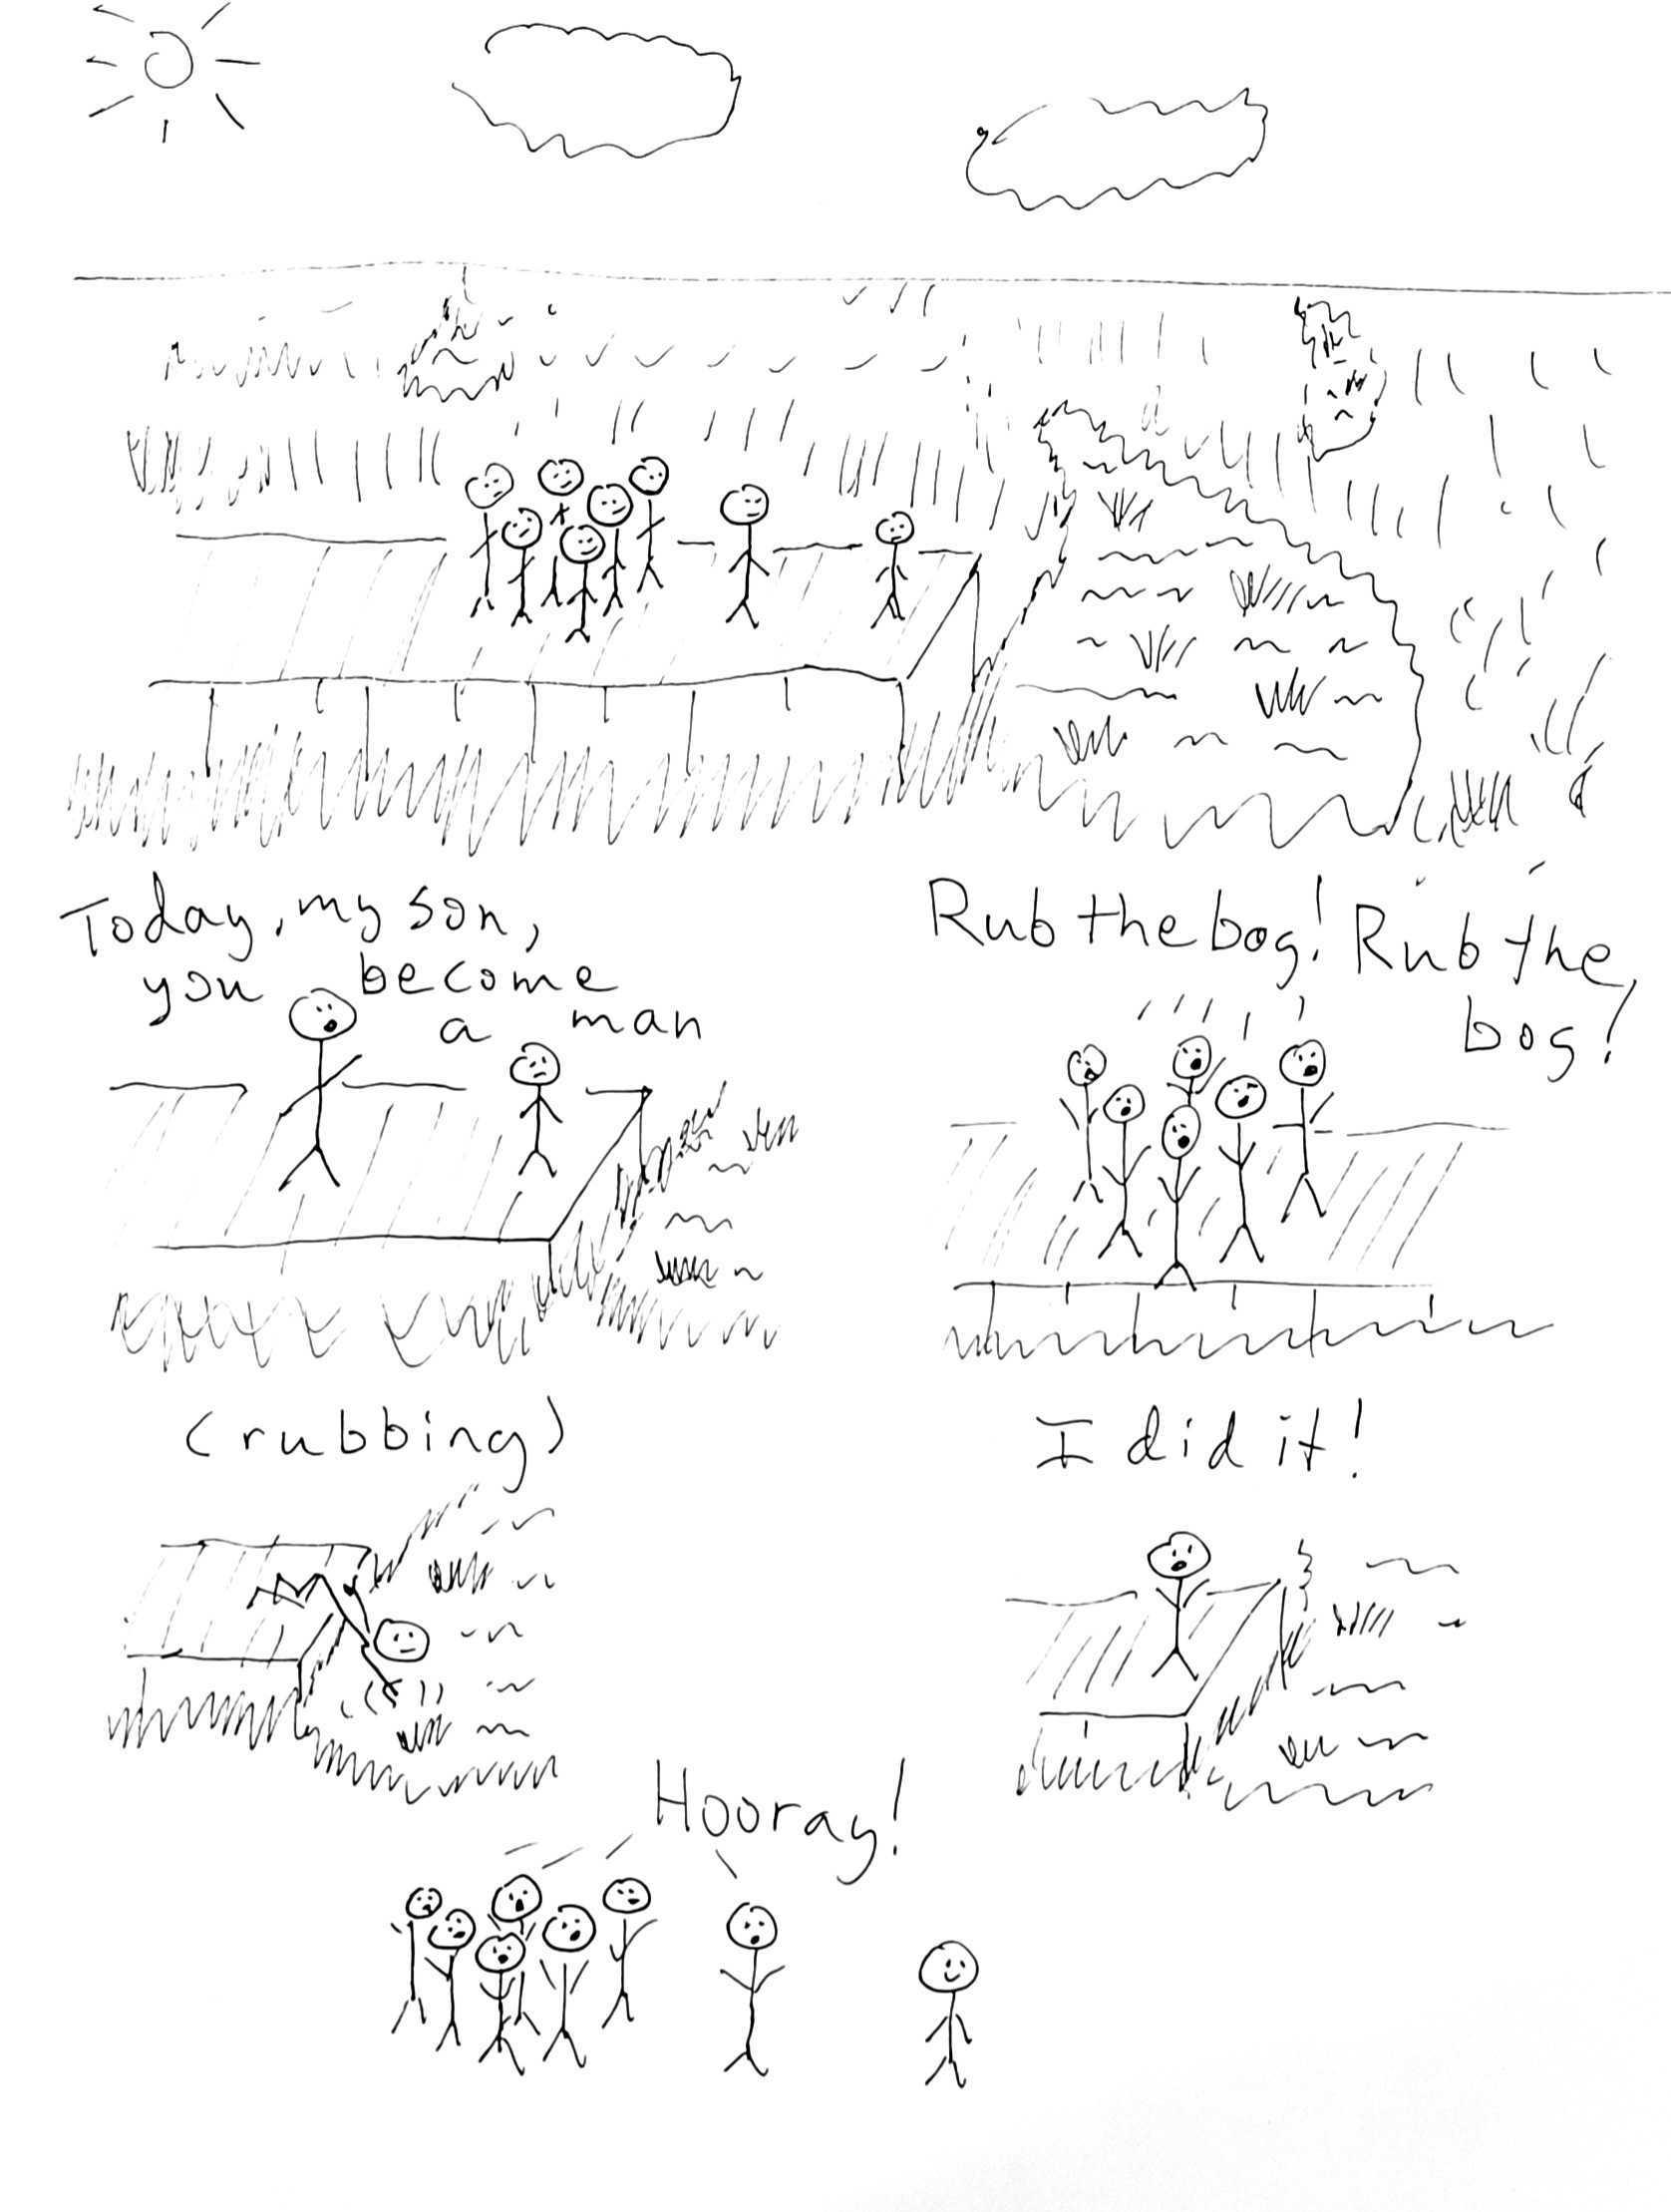 Today, my son,
you become
a man
Rub the bog! Rub the
bog!
(rubbing)
I did it!
Hooray!